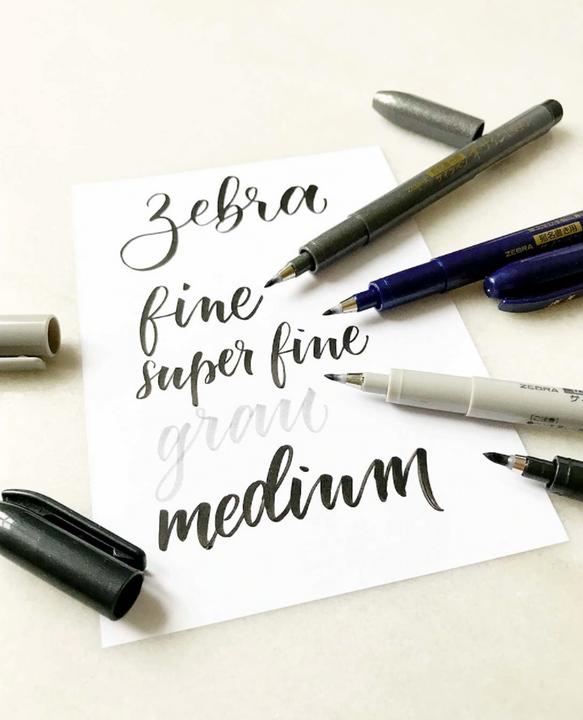 Zebra
fine
super fine
grau
medium
ZEBRA
ZEBRA